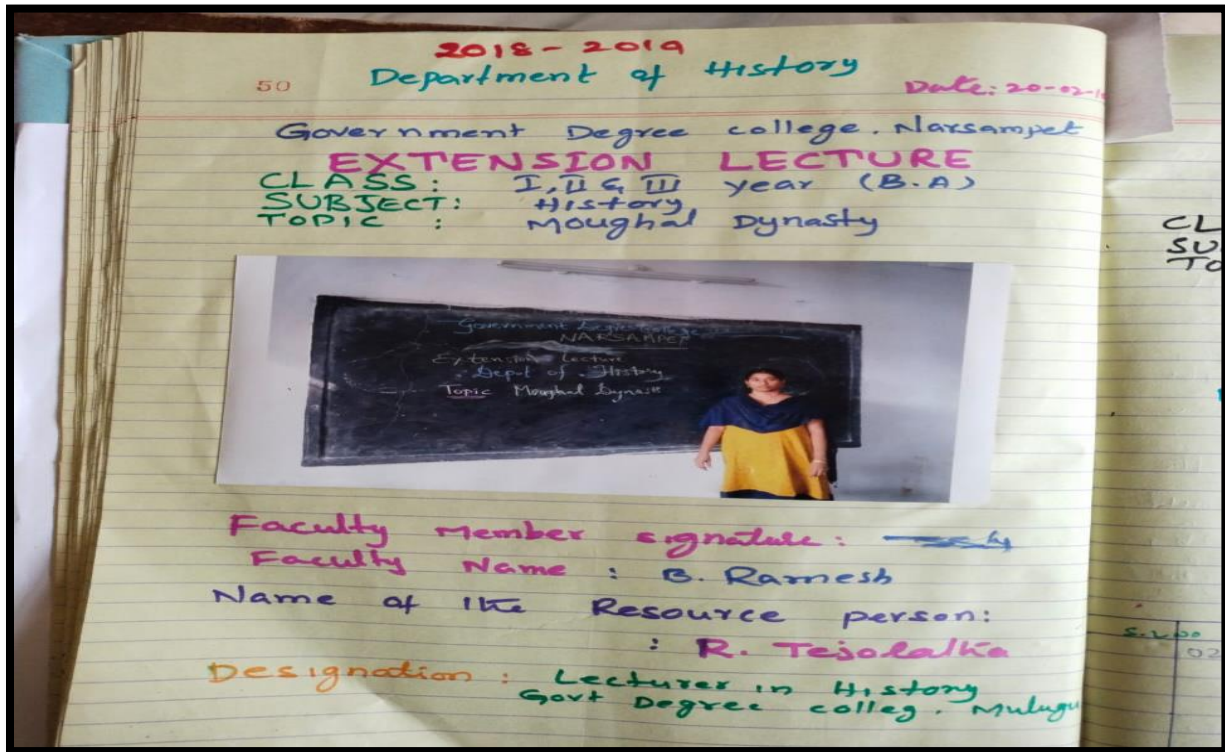 2018 - 2019
50 Department of History
Date: 20-02-1
Government Degree college. Narsampet
EXTENSION LECTURE
CLASS: I, II & III year (B.A)
SUBJECT: History
TOPIC : Moughal Dynasty
Government Degree College
NARSAMPET
Extension Lecture
Deput of . History
Topic Moughal Dynast
Faculty Member signature:
Faculty Name : B. Ramesh
Name of the Resource person:
: R. Tejolatha
Designation : Lecturer in History
Govt Degree colleg. Mulugu
CL
SU
TO
S.No
02